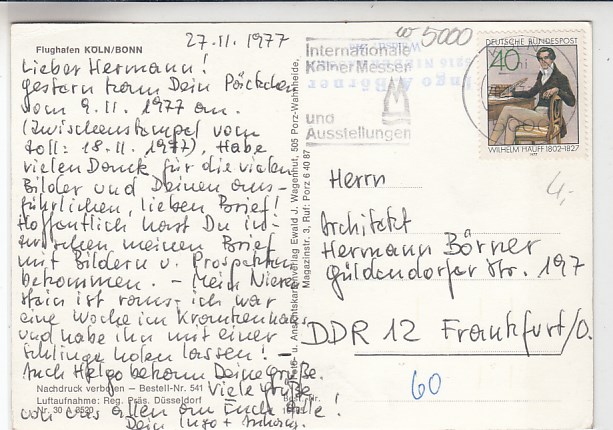 Flughafen KÖLN/BONN
27.11.1977
Lieber Hermann!
gestern kam Dein Päckchen
vom 9.11.1977 an.
(Zwischenstempel vom
Zoll: 18.11.1977). Habe
vielen Dank für die vielen
Bilder und Deinen aus-
führlichen, lieben Brief!
Hoffentlich hast Du in-
zwischen meinen Brief
mit Bildern u. Prospekten
bekommen. - Mein Nieren-
stein ist raus - ich war
eine Woche im Krankenhaus
und habe ihn mit einer
Schlinge holen lassen! -
Auch Helga bekam Deine Grüße.
Viele Grüße
von uns allen an Euch alle!
Dein Ingo +
Nachdruck verboten — Bestell-Nr. 541
Luftaufnahme: Reg. Präs. Düsseldorf
Nr. 30 A 8520
u. Ansichtskartenverlag Ewald J. Wagenhut, 505 Porz-Wahnheide,
Magazinstr. 3, Ruf: Porz 6 40 87
5000
Internationale
Kölner Messen
und
Ausstellungen
Ingo A. Börner
DEUTSCHE BUNDESPOST
40
WILHELM HAUFF 1802-1827
1977
4,-
Herrn
Architekt
Hermann Börner
Güldendorfer Str. 197
DDR 12 Frankfurt/O.
60